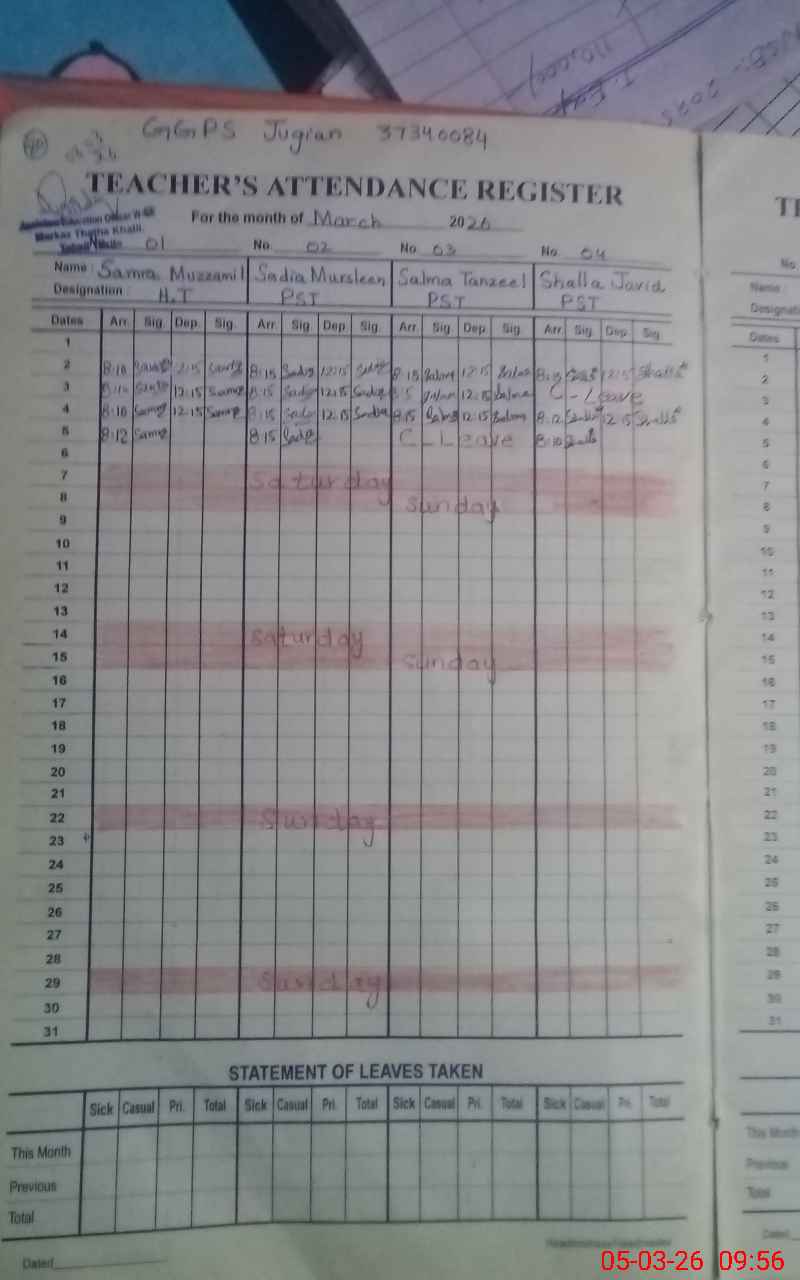 GGPS Jugian 37340084
TEACHER'S ATTENDANCE REGISTER
For the month of March 2026
Assistant Education Officer W-EE
Markaz Thatha Khalil
No 01 No 02 No 03 No. 04
Name : Samra Muzzamil Sadia Mursleen Salma Tanzeel Shalla Javid
Designation : H.T PST PST PST
Dates Arr. Sig. Dep. Sig. Arr. Sig. Dep. Sig. Arr. Sig. Dep. Sig. Arr. Sig. Dep. Sig.
1
2 8:10 12:15 8:15 Sadia 12:15 8:15 Salma 12:15 Salma 12:15
3 8:10 12:15 8:15 Sadia 12:15 Sadia 12:15 Salma C-Leave
4 8:10 12:15 8:15 12:15 Sadia 8:15 Salma 12:15 Salma 8:12 12:15
5 8:12 8:15 C-Leave 8:10
6
7 Saturday
8 Sunday
9
10
11
12
13
14 Saturday
15 Sunday
16
17
18
19
20
21
22 Sunday
23
24
25
26
27
28
29 Sunday
30
31
STATEMENT OF LEAVES TAKEN
Sick Casual Pri. Total Sick Casual Pri. Total Sick Casual Pri. Total Sick Casual Pri. Total
This Month
Previous
Total
Dated
05-03-26 09:56
No
Name :
Dates
1
2
3
4
5
6
7
8
9
10
11
12
13
14
15
16
17
18
19
20
21
22
23
24
25
26
27
28
29
30
31
This Month
Previous
Total